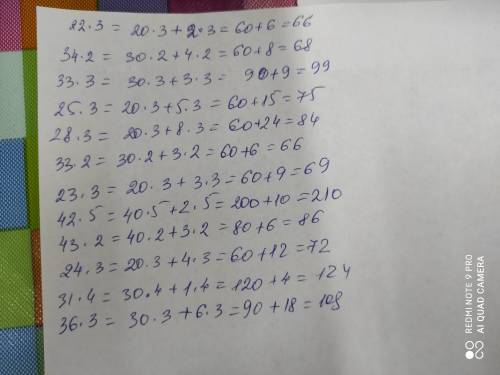 22·3 = 20·3+2·3=60+6=66
34·2 = 30·2+4·2=60+8=68
33·3 = 30·3+3·3= 90+9=99
25·3=20·3+5·3=60+15=75
28·3= 20·3+8·3=60+24=84
33·2= 30·2+3·2=60+6=66
23·3= 20·3+3·3=60+9=69
42·5=40·5+2·5=200+10=210
43·2=40·2+3·2=80+6=86
24·3=20·3+4·3=60+12=72
31·4= 30·4+1·4=120+4=124
36·3= 30·3+6·3=90+18=108
REDMI NOTE 9 PRO
AI QUAD CAMERA